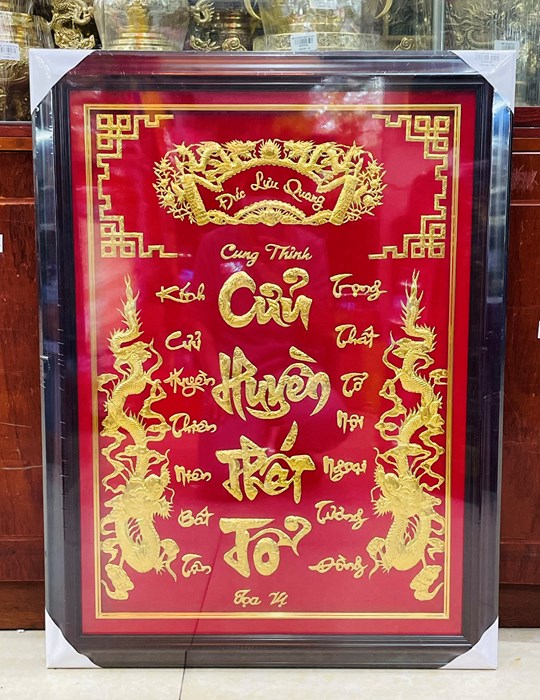 Đức Lưu Quang
Cung Thỉnh
Cửu
Huyền
Thất
Tổ
Tọa Vị
Kính
Cửu
Huyền
Thiên
Niên
Bất
Tận
Trọng
Thất
Tổ
Nội
Ngoại
Tường
Đồng